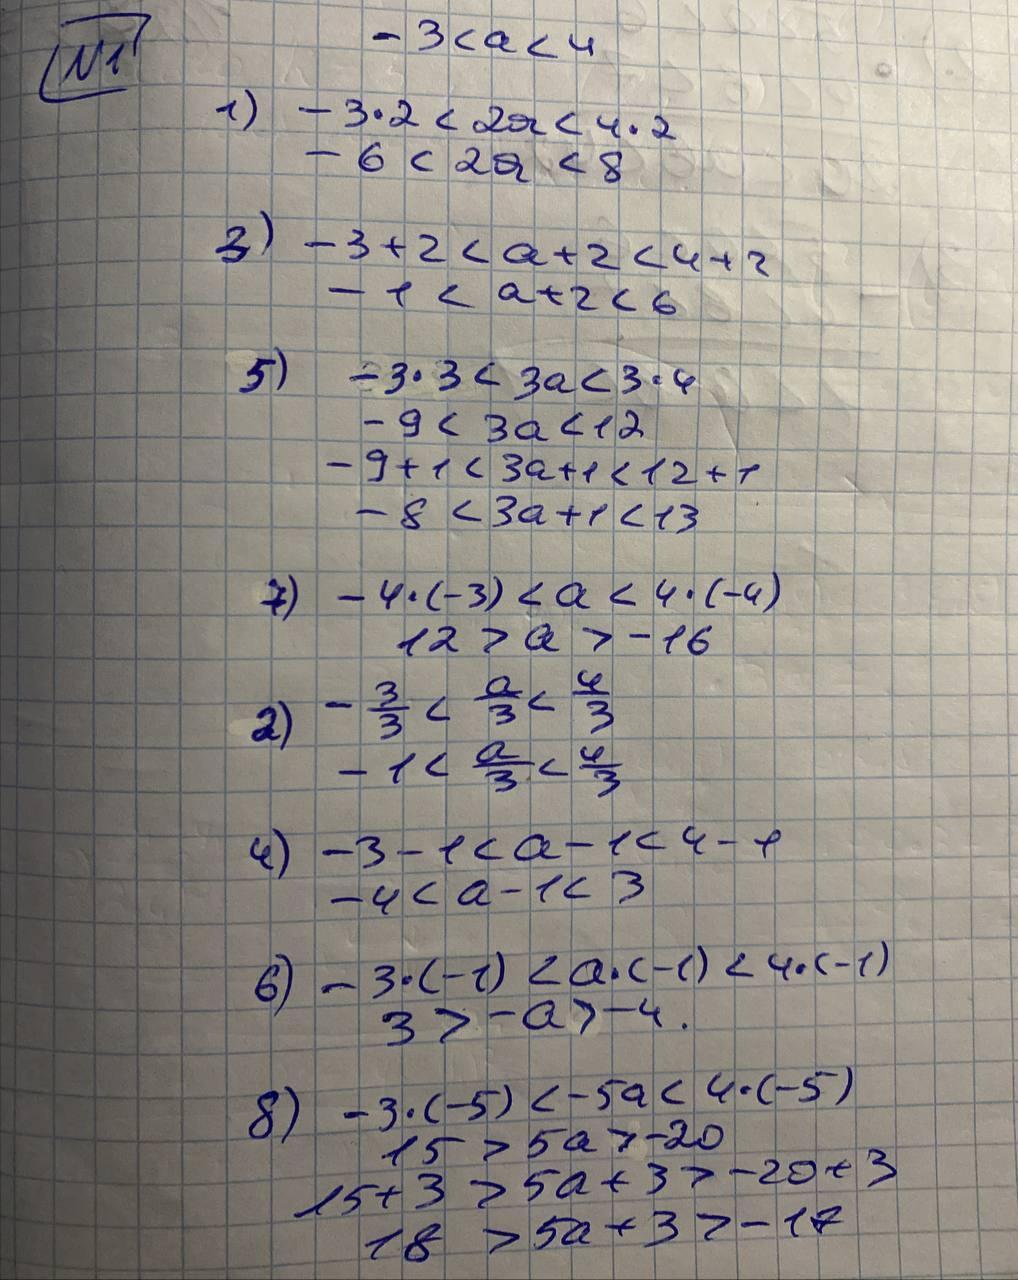 №1
-3<a<4
1) -3·2<2a<4·2
-6<2a<8
3) -3+2<a+2<4+2
-1<a+2<6
5) -3·3<3a<3·4
-9<3a<12
-9+1<3a+1<12+1
-8<3a+1<13
7) -4·(-3)<a<4·(-4)
12>a>-16
2) -3/3<a/3<4/3
-1<a/3<4/3
4) -3-1<a-1<4-1
-4<a-1<3
6) -3·(-1)<a·(-1)<4·(-1)
3>-a>-4.
8) -3·(-5)<-5a<4·(-5)
15>5a>-20
15+3>5a+3>-20+3
18>5a+3>-17